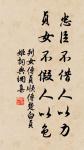 忠臣不借人以力
貞女不假人以色
列女傳貞順傳楚白貞
姬詞典網集